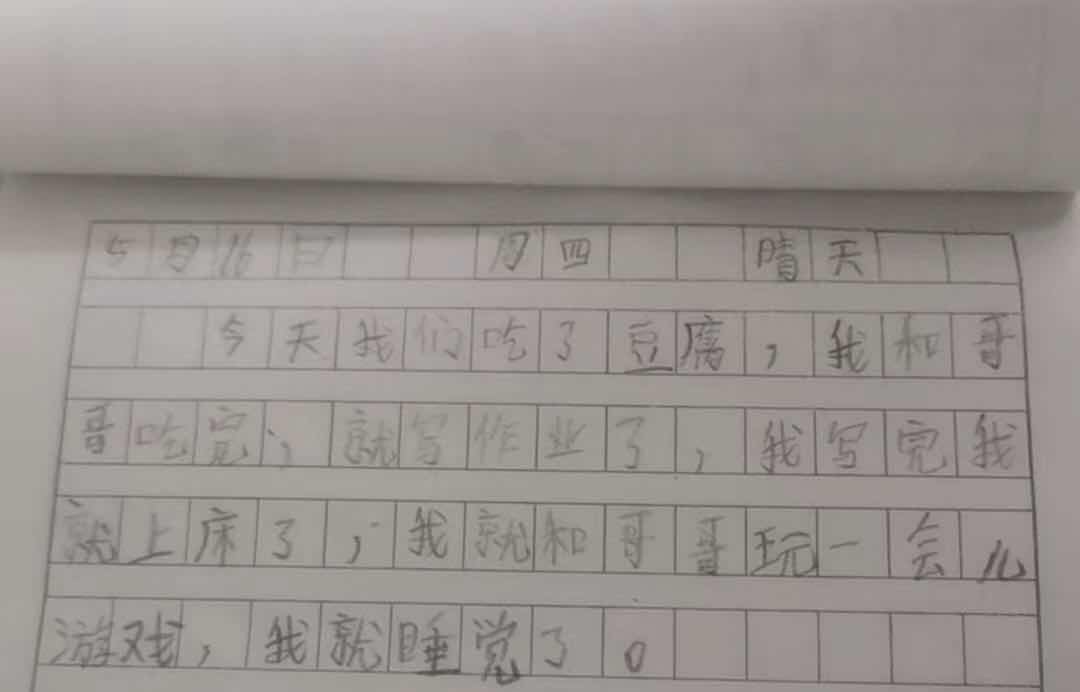 5月16日 周四 晴天
今天我们吃了豆腐，我和哥
哥吃完，就写作业了，我写完我
就上床了，我就和哥哥玩一会儿
游戏，我就睡觉了。